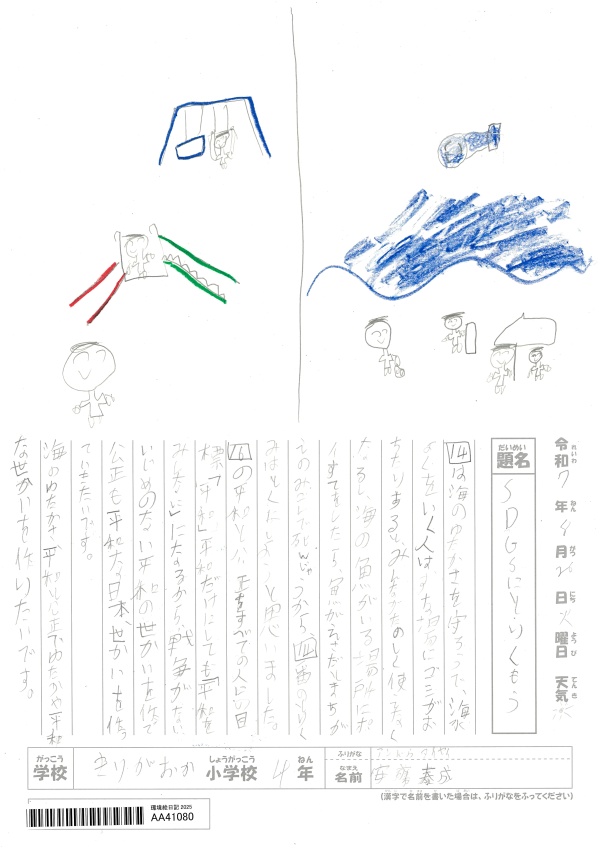 令和7年8月26日火曜日 天気
れいわ ねん がつ にち ようび てんき
だいめい
題名 SDGsにとりくもう
14は海のゆたかさを守ろうで、海水
よくをいく人はすな場にゴミがお
ちたりするとみんなたのしく使えなく
なるし海の魚がいる場所にポ
イすてをしたら、魚がえさだとまちが
えのみこで死んじゃうから14番をとりく
みはとくにしようと思いました。
16の平和と公正をすべての人にの目
標で「平和」平和だけにしても「平和を
みんなに」になるから、戦争がない
いじめのない平和のせかいを作って
公正も平和な日本、せかいを作っ
ていきたいです。
海のゆたかさ、平和と公正でゆたかや平和
な世かいを作りたいです。
がっこう しょうがっこう ねん ふりがな
学校 きりがおか 小学校 4年
なまえ
名前 泰成
(漢字で名前を書いた場合は、ふりがなをふってください)
環境絵日記 2025
AA41080